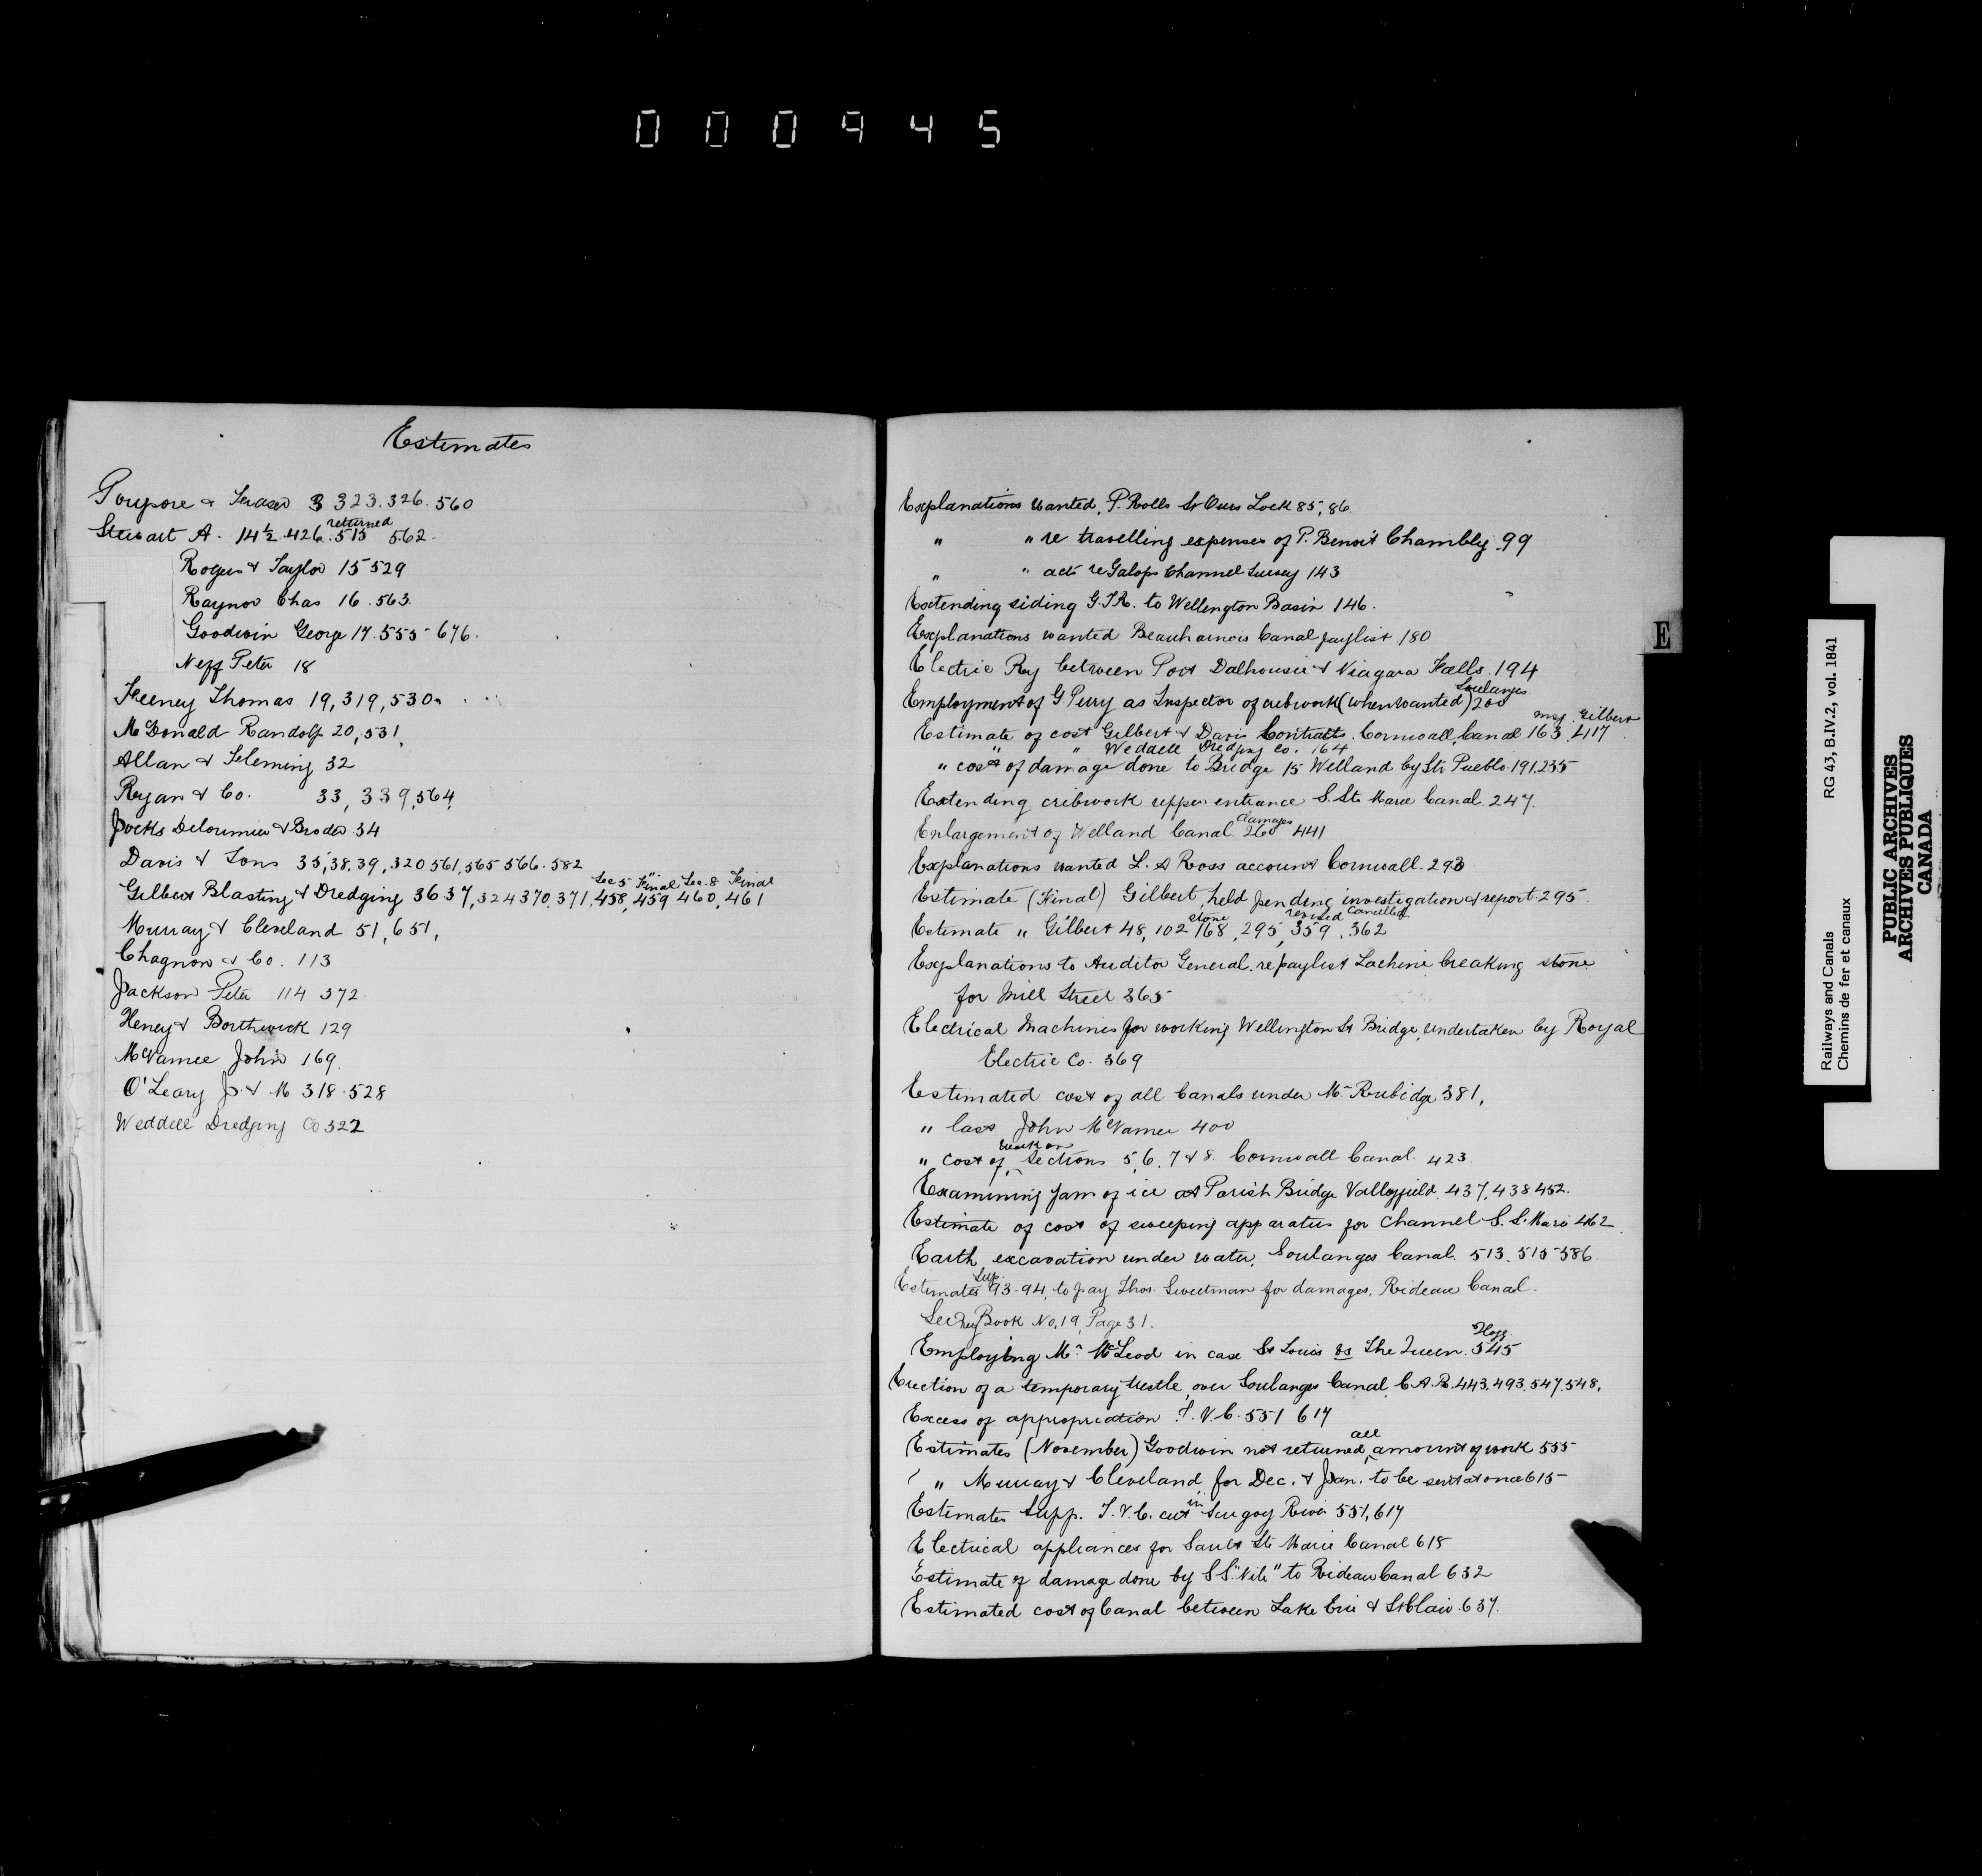 000945
Estimates
Poupore & Fraser 3 323.326.560
returned
Stewart A. 14½.426.515 562.
Rogers & Taylor 15 529
Raynor Chas 16.563.
Goodwin George 17.555-676.
Neff Peter 18
Feeney Thomas 19,319,530.
McDonald Randolf 20,531,
Allan & Fleming 32
Ryan & Co. 33, 339,564,
Jocks Delorimier & Broder 34
Davis & Sons 35,38.39,320 561,565 566.582
Sec 5 Final Sec. 8 Final
Gilbert Blasting & Dredging 36 37,324 370.371.458,459 460,461
Murray & Cleveland 51,651,
Chagnon & Co. 113
Jackson Peter 114 372.
Heney & Borthwick 129
McNamee John 169.
O'Leary J. & M 318.528
Weddell Dredging Co 322
Explanations wanted, P. Rolls St Ours Lock 85,86.
" " re travelling expenses of P. Benoit Chambly 99
" " acts re Galops Channel Survey 143
Extending siding G.T.R. to Wellington Basin 146.
Explanations wanted Beauharnois Canal paylist 180
Electric Ry between Port Dalhousie & Niagara Falls.194
Soulanges
Employment of G Perry as Inspector of cribwork (when wanted) 200
Gilbert
Estimate of cost Gilbert & Davis Contracts. Cornwall Canal 163.417
" " Weddell Dredging Co. 164
" cost of damage done to Bridge 15 Welland by Str Pueblo.191.235
Extending cribwork upper entrance S. Ste Marie Canal.247.
damages
Enlargement of Welland Canal.260 441
Explanations wanted L. A Ross account Cornwall.293
Estimate (Final) Gilbert, held pending investigation & report.295.
stone revised cancelled
Estimate " Gilbert 48,102 168,295,359.362
Explanations to Auditor General. re paylist Lachine breaking stone
for Mill Street 365
Electrical Machines for working Wellington St Bridge, undertaken by Royal
Electric Co. 369
Estimated cost of all Canals under Mr Rubidge 381,
" last John McNamee 400
work on
" cost of sections 5,6,7 & 8. Cornwall Canal. 423.
Examining Jam of ice at Parish Bridge Valleyfield.437,438 452.
Estimate of cost of sweeping apparatus for channel S. S. Marie 462
Earth excavation under water, Soulanges Canal. 513.515-586.
Sup.
Estimates 93-94, to pay Thos. Sweetman for damages, Rideau Canal.
See Key Book No.19, Page 31.
Hogg
Employing Mr McLeod in case St Louis vs The Queen. 545
Erection of a temporary trestle, over Soulanges Canal, C.A.R.443.493.547.548.
Excess of appropriation T.V.C.551 617
all
Estimates (November) Goodwin not returned, amount of work 555-
" Murray & Cleveland, for Dec. & Jan. to be sent at once 615-
in
Estimates Supp. T.V.C. cut Scugog River 551,617
Electrical appliances for Sault Ste Marie Canal 618
Estimate of damage done by S.S. "Nile" to Rideau Canal 632
Estimated cost of Canal between Lake Erie & St Clair.637.
E
RG 43, B.IV.2, vol. 1841
Railways and Canals
Chemins de fer et canaux
PUBLIC ARCHIVES
ARCHIVES PUBLIQUES
CANADA